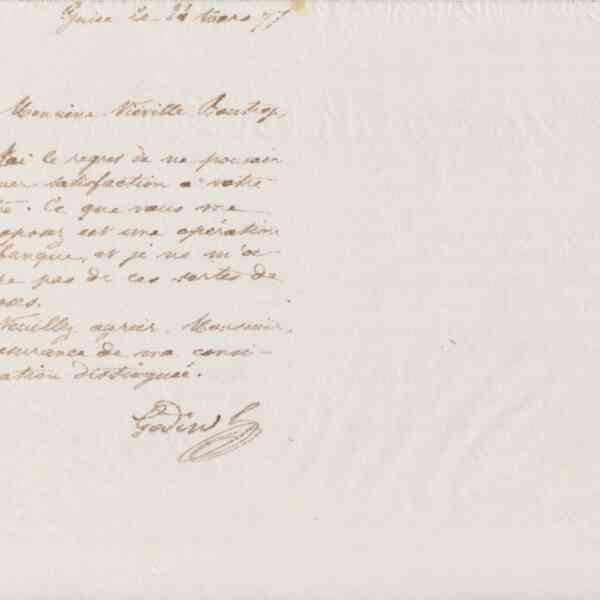 Guise le 24 Mars 77
Monsieur Viéville
J'ai le regret de ne pouvoir
satisfaction à votre
Ce que vous me
oposez est une opération
banque, et je ne m'oc
pe pas de ces sortes de
oses.
Veuillez agréer, Monsieur,
ssurance de ma consi-
ation distinguée.
Godin